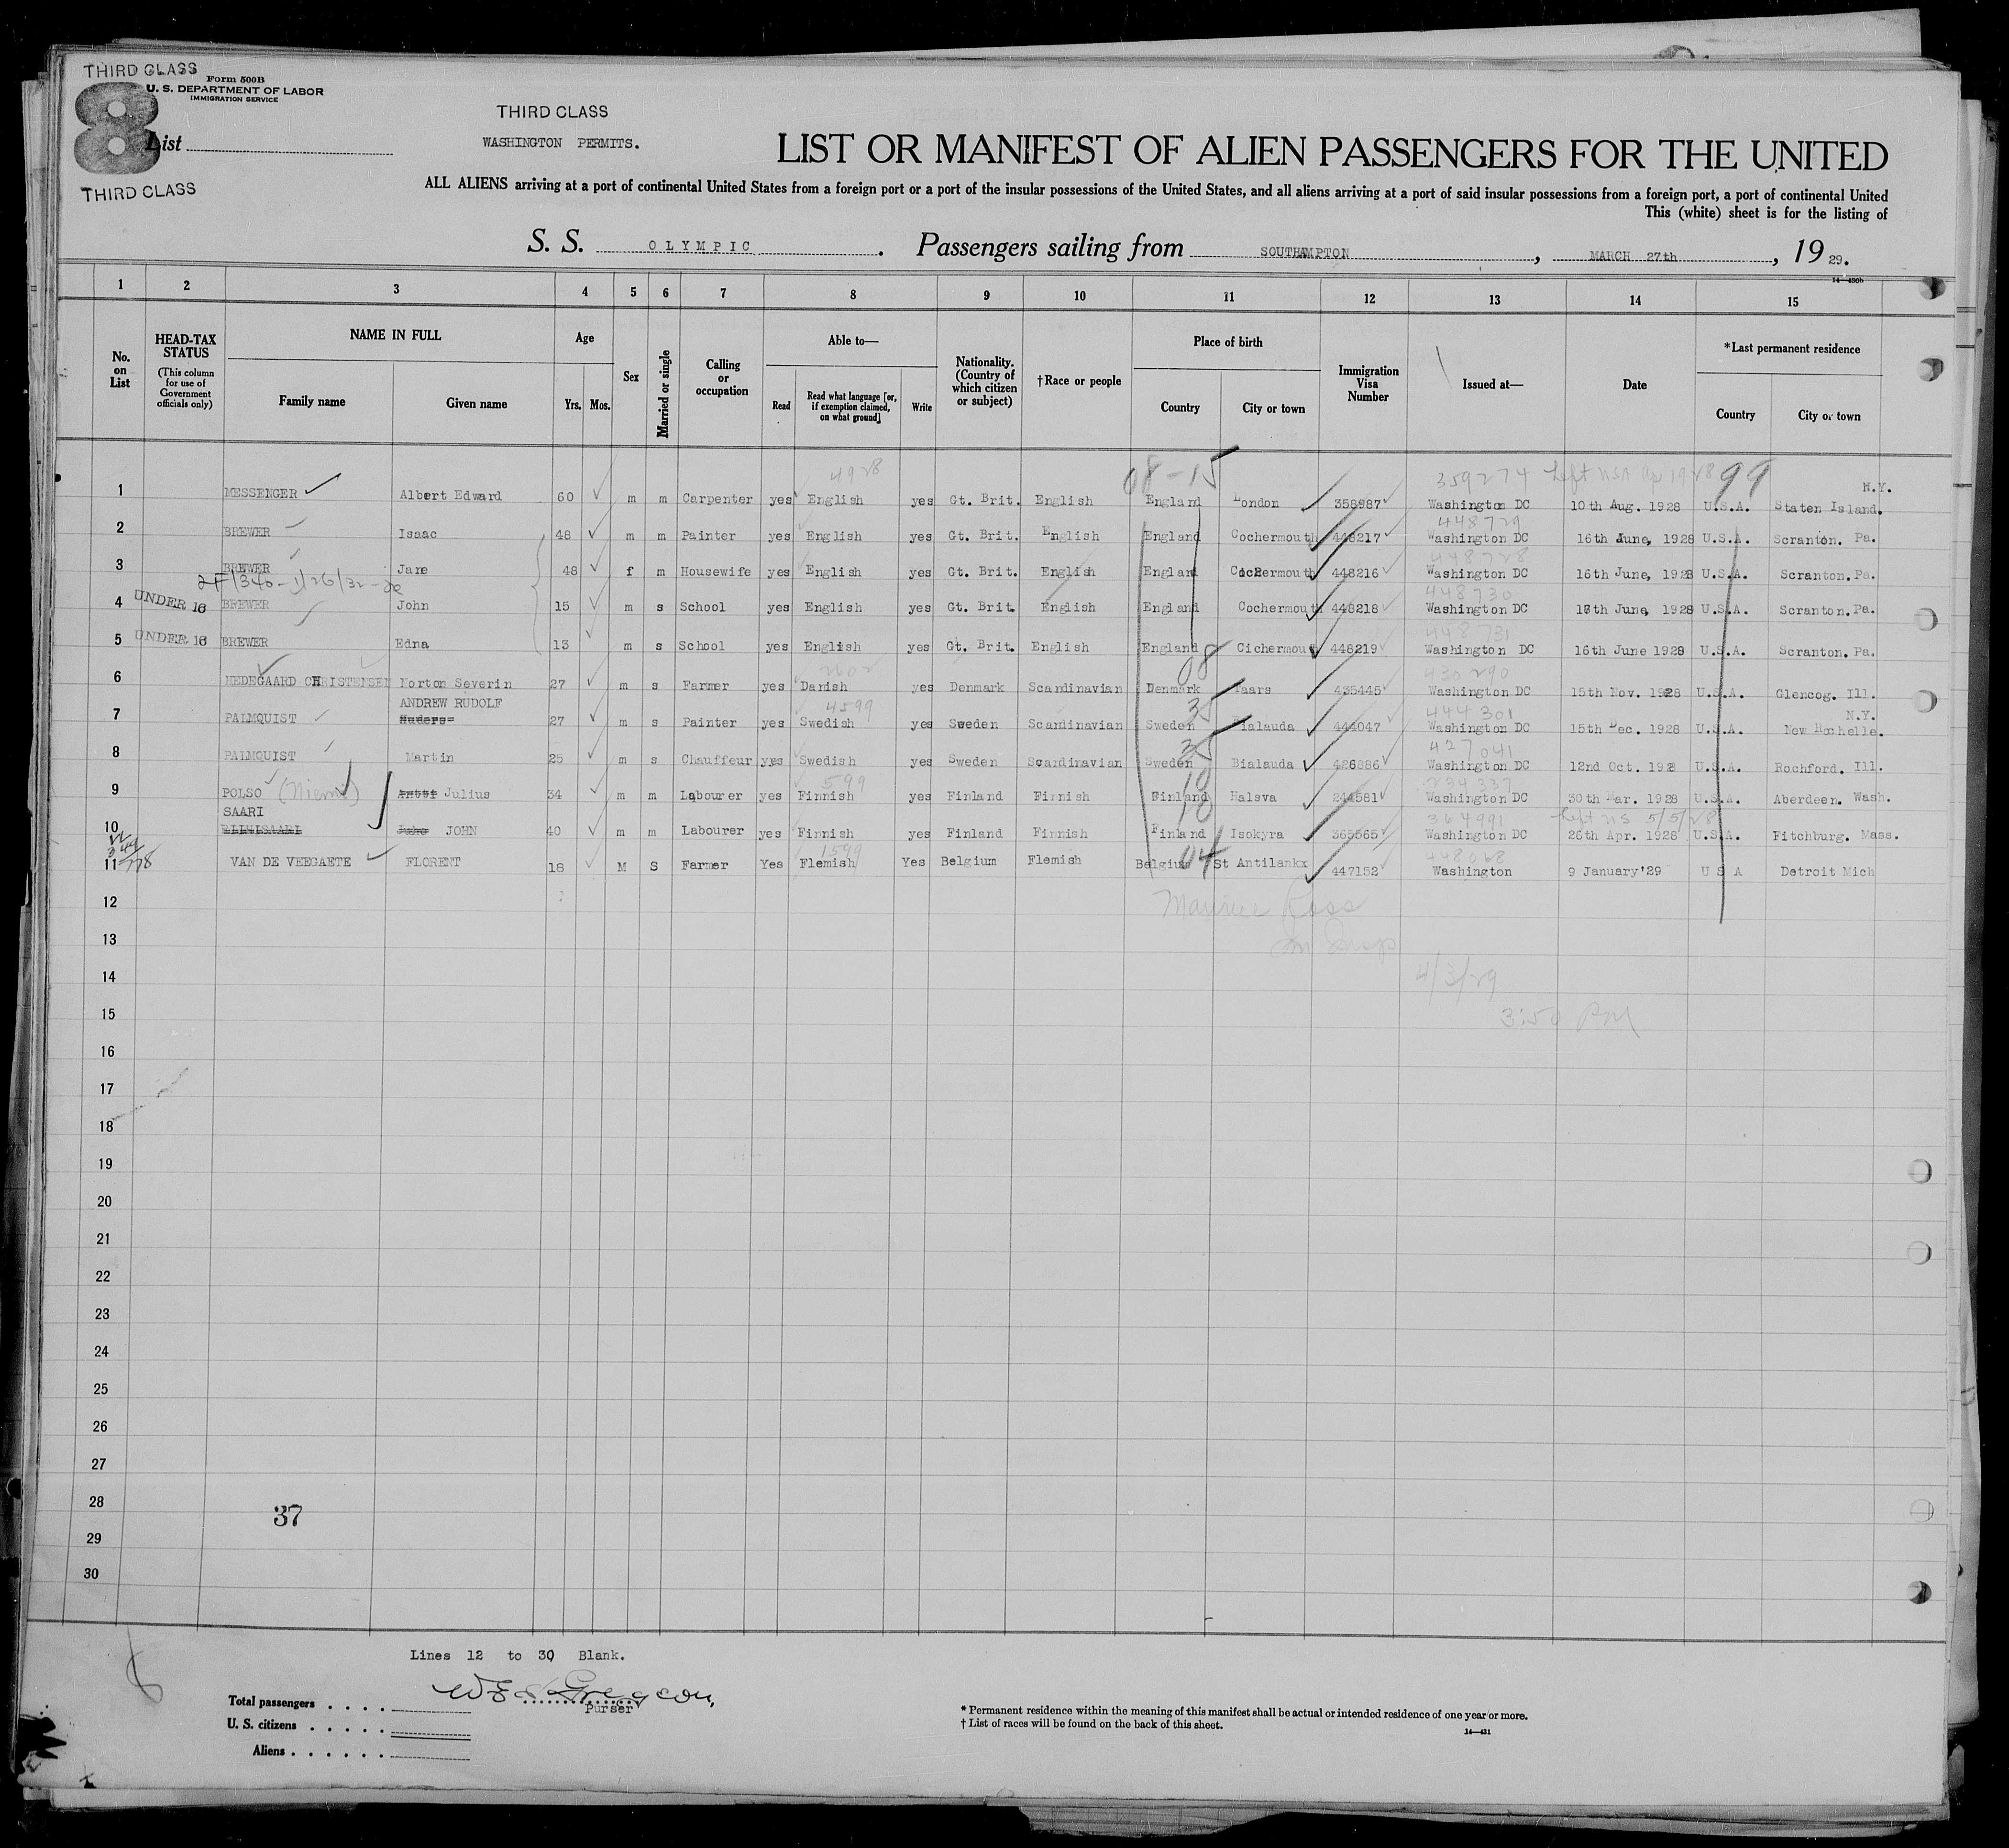 THIRD CLASS
Form 500B
U. S. DEPARTMENT OF LABOR
IMMIGRATION SERVICE
8
List
THIRD CLASS
THIRD CLASS
WASHINGTON PERMITS.
LIST OR MANIFEST OF ALIEN PASSENGERS FOR THE UNITED
ALL ALIENS arriving at a port of continental United States from a foreign port or a port of the insular possessions of the United States, and all aliens arriving at a port of said insular possessions from a foreign port, a port of continental United
This (white) sheet is for the listing of
S. S. OLYMPIC. Passengers sailing from SOUTHAMPTON, MARCH 27th, 19 29.
14—430b
1 2 3 4 5 6 7 8 9 10 11 12 13 14 15
No. on List
HEAD-TAX STATUS
(This column for use of Government officials only)
NAME IN FULL
Family name
Given name
Age
Yrs. Mos.
Sex
Married or single
Calling or occupation
Able to—
Read
Read what language [or, if exemption claimed, on what ground]
Write
Nationality. (Country of which citizen or subject)
†Race or people
Place of birth
Country
City or town
Immigration Visa Number
Issued at—
Date
*Last permanent residence
Country
City or town
4928 08-15 359274 99
N.Y.
1 MESSENGER Albert Edward 60 m m Carpenter yes English yes Gt. Brit. English England London 358987 Washington DC 10th Aug. 1928 U.S.A. Staten Island.
448729
2 BREWER Isaac 48 m m Painter yes English yes Gt. Brit. English England Cochermouth 448217 Washington DC 16th June, 1928 U.S.A. Scranton. Pa.
448728
3 BREWER Jane 48 f m Housewife yes English yes Gt. Brit. English England Cochermouth 448216 Washington DC 16th June, 1928 U.S.A. Scranton. Pa.
2F/340-1/26/32-
448730
4 UNDER 16 BREWER John 15 m s School yes English yes Gt. Brit. English England Cochermouth 448218 Washington DC 16th June, 1928 U.S.A. Scranton. Pa.
448731
5 UNDER 16 BREWER Edna 13 m s School yes English yes Gt. Brit. English England Cichermouth 448219 Washington DC 16th June 1928 U.S.A. Scranton. Pa.
2602 08 430290
6 HEDEGAARD CHRISTENSEN Norton Severin 27 m s Farmer yes Danish yes Denmark Scandinavian Denmark Taars 435445 Washington DC 15th Nov. 1928 U.S.A. Glencog. Ill.
ANDREW RUDOLF 4599 35 444301 N.Y.
7 PALMQUIST Anders 27 m s Painter yes Swedish yes Sweden Scandinavian Sweden Bialauda 444047 Washington DC 15th Dec. 1928 U.S.A. New Rochelle.
35 427041
8 PALMQUIST Martin 25 m s Chauffeur yes Swedish yes Sweden Scandinavian Sweden Bialauda 426886 Washington DC 12nd Oct. 1928 U.S.A. Rochford. Ill.
599 10 234337
9 POLSO (Niemi) Antti Julius 34 m m Labourer yes Finnish yes Finland Finnish Finland Halsva 244581 Washington DC 30th Mar. 1928 U.S.A. Aberdeen. Wash.
SAARI 10 364991 Left NS 5/5/28
10 Juho JOHN 40 m m Labourer yes Finnish yes Finland Finnish Finland Isokyra 365565 Washington DC 26th Apr. 1928 U.S.A. Fitchburg. Mass.
1599 04 448068
11 VAN DE VEEGAETE FLORENT 18 M S Farmer Yes Flemish Yes Belgium Flemish Belgium St Antilankx 447152 Washington 9 January'29 U S A Detroit Mich
12
13
14 4/3/29
15 3:50 PM
16
17
18
19
20
21
22
23
24
25
26
27
28 37
29
30
Lines 12 to 30 Blank.
Purser
Total passengers
U. S. citizens
Aliens
* Permanent residence within the meaning of this manifest shall be actual or intended residence of one year or more.
† List of races will be found on the back of this sheet.
14—431